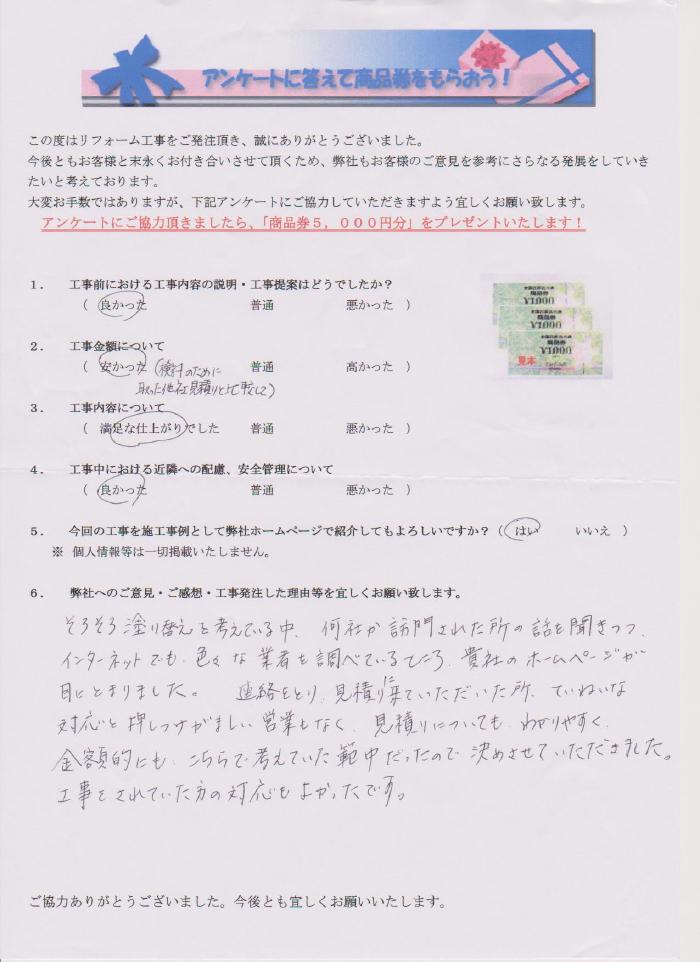 アンケートに答えて商品券をもらおう！
この度はリフォーム工事をご発注頂き、誠にありがとうございました。
今後ともお客様と末永くお付き合いさせて頂くため、弊社もお客様のご意見を参考にさらなる発展をしていき
たいと考えております。
大変お手数ではありますが、下記アンケートにご協力していただきますよう宜しくお願い致します。
アンケートにご協力頂きましたら、「商品券５，０００円分」をプレゼントいたします！
１． 工事前における工事内容の説明・工事提案はどうでしたか？
（ 良かった 普通 悪かった ）
商品券
¥1,000
商品券
¥1,000
商品券
¥1,000
見本
２． 工事金額について
（ 安かった 普通 高かった ）
（検討のために
取った他社見積りと比較して）
３． 工事内容について
（ 満足な仕上がりでした 普通 悪かった ）
４． 工事中における近隣への配慮、安全管理について
（ 良かった 普通 悪かった ）
５． 今回の工事を施工事例として弊社ホームページで紹介してもよろしいですか？（ はい いいえ ）
※ 個人情報等は一切掲載いたしません。
６． 弊社へのご意見・ご感想・工事発注した理由等を宜しくお願い致します。
そろそろ塗り替えを考えている中、何社か訪問された所の話を聞きつつ、
インターネットでも、色々な業者を調べているところ、貴社のホームページが
目にとまりました。 連絡をとり、見積りに来ていただいた所、ていねいな
対応と押しつけがましい営業もなく、見積りについても、わかりやすく、
金額的にも、こちらで考えていた範中だったので決めさせていただきました。
工事をされていた方の対応もよかったです。
ご協力ありがとうございました。今後とも宜しくお願いいたします。